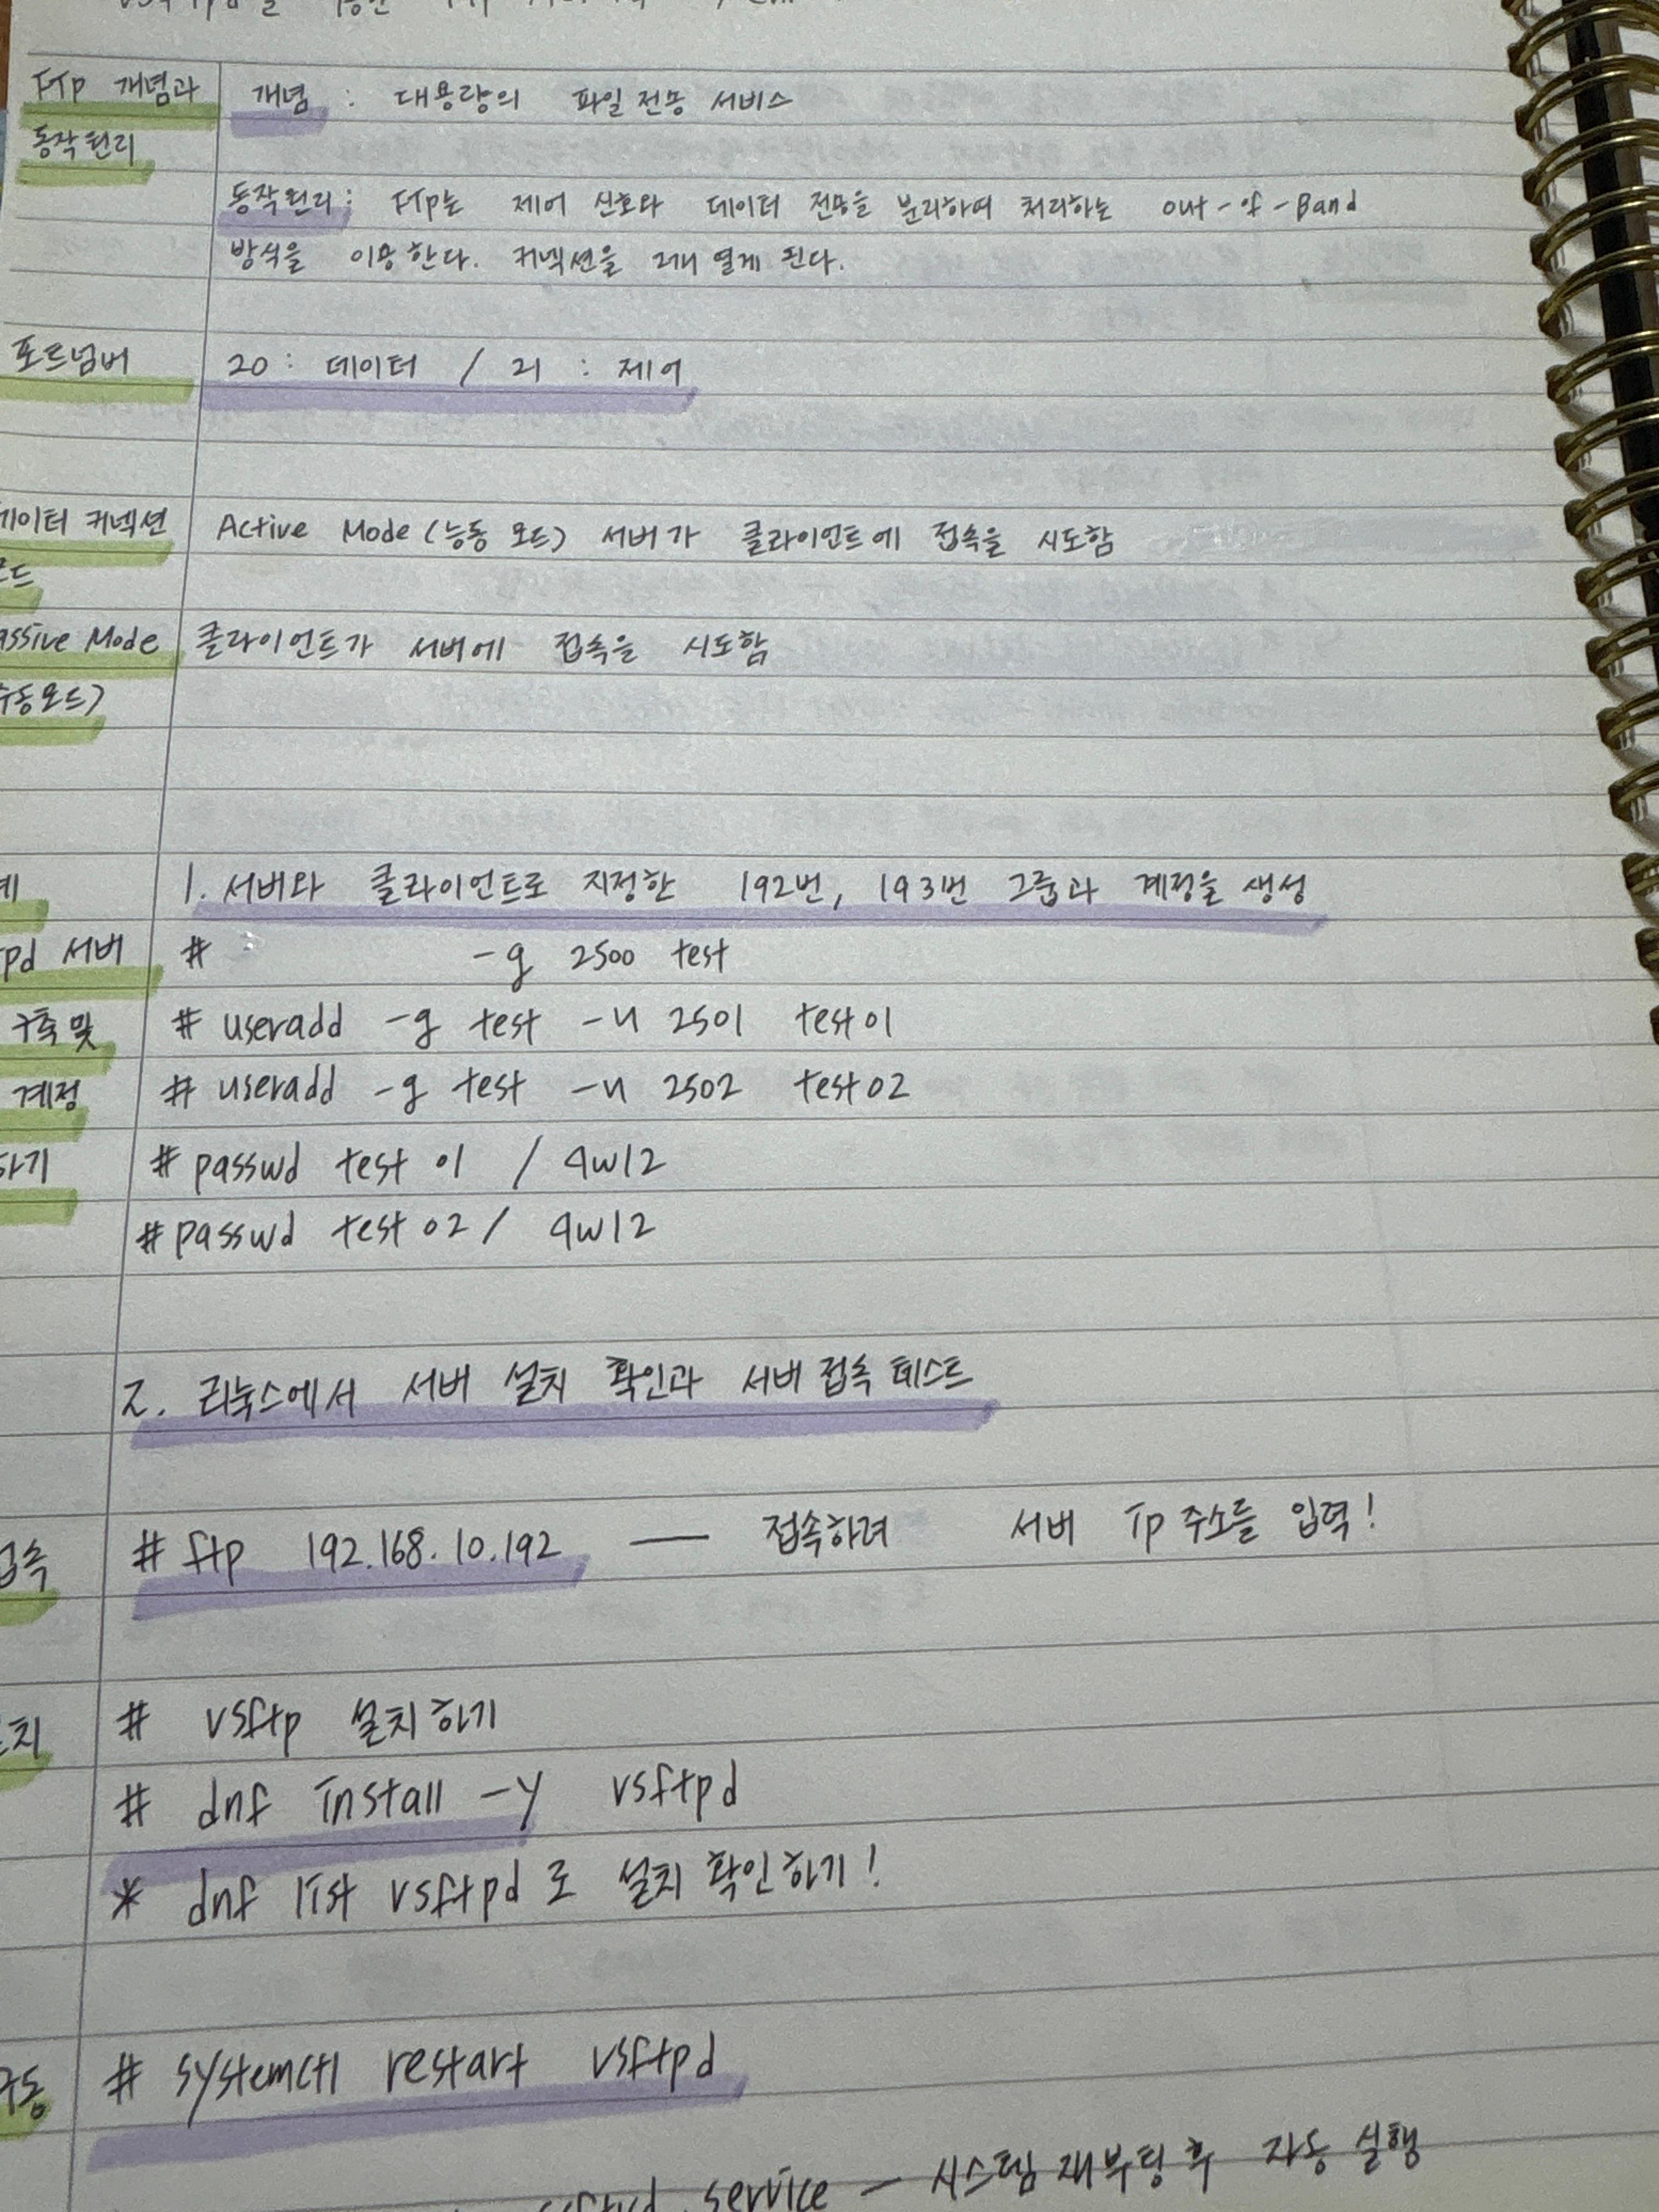 FTP 개념과 개념 : 대용량의 파일전송 서비스
동작원리
동작원리 : FTP는 제어 신호와 데이터 전송을 분리하여 처리하는 out-of-Band
방식을 이용한다. 커넥션을 2개 열게 된다.
포트넘버 20 : 데이터 / 21 : 제어
커넥션 Active Mode (능동 모드) 서버가 클라이언트에 접속을 시도함
assive Mode 클라이언트가 서버에 접속을 시도함
수동모드)
1. 서버와 클라이언트로 지정한 192번, 193번 그룹과 계정을 생성
pd 서버 # -g 2500 test
구축 및 # useradd -g test -u 2501 test01
계정 # useradd -g test -u 2502 test02
하기 # passwd test01 / qw12
# passwd test02 / qw12
2. 리눅스에서 서버 설치 확인과 서버접속 테스트
접속 # ftp 192.168.10.192 — 접속하려 서버 Ip 주소를 입력!
# vsftp 설치하기
# dnf install -y vsftpd
* dnf list vsftpd로 설치 확인하기!
구동 # systemctl restart vsftpd
service — 시스템 재부팅 후 자동 실행